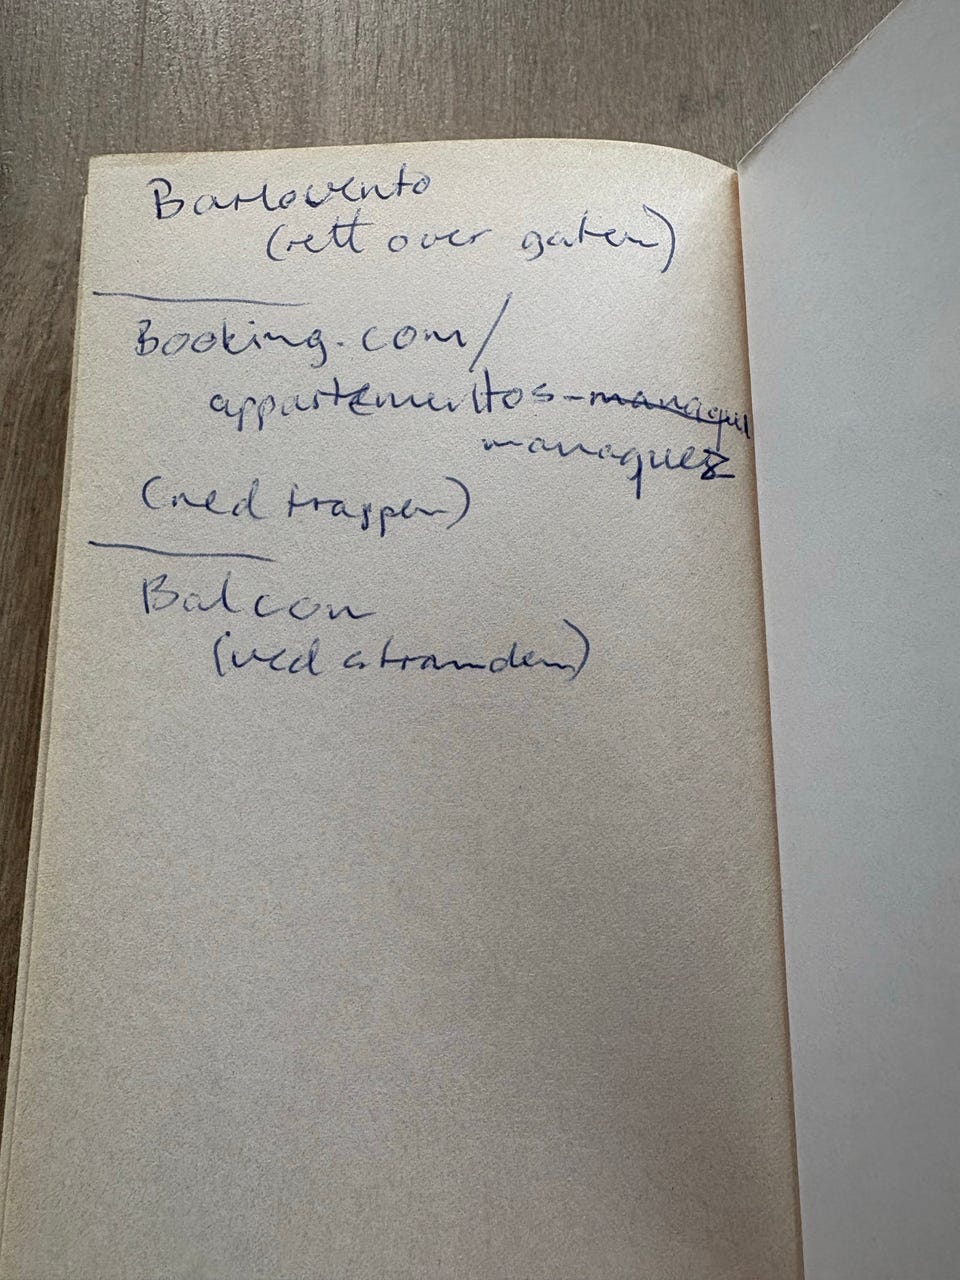 Barlovento
(rett over gaten)
Booking.com/
appartementos-managu
managuez
(ned trappen)
Balcon
(ved stranden)